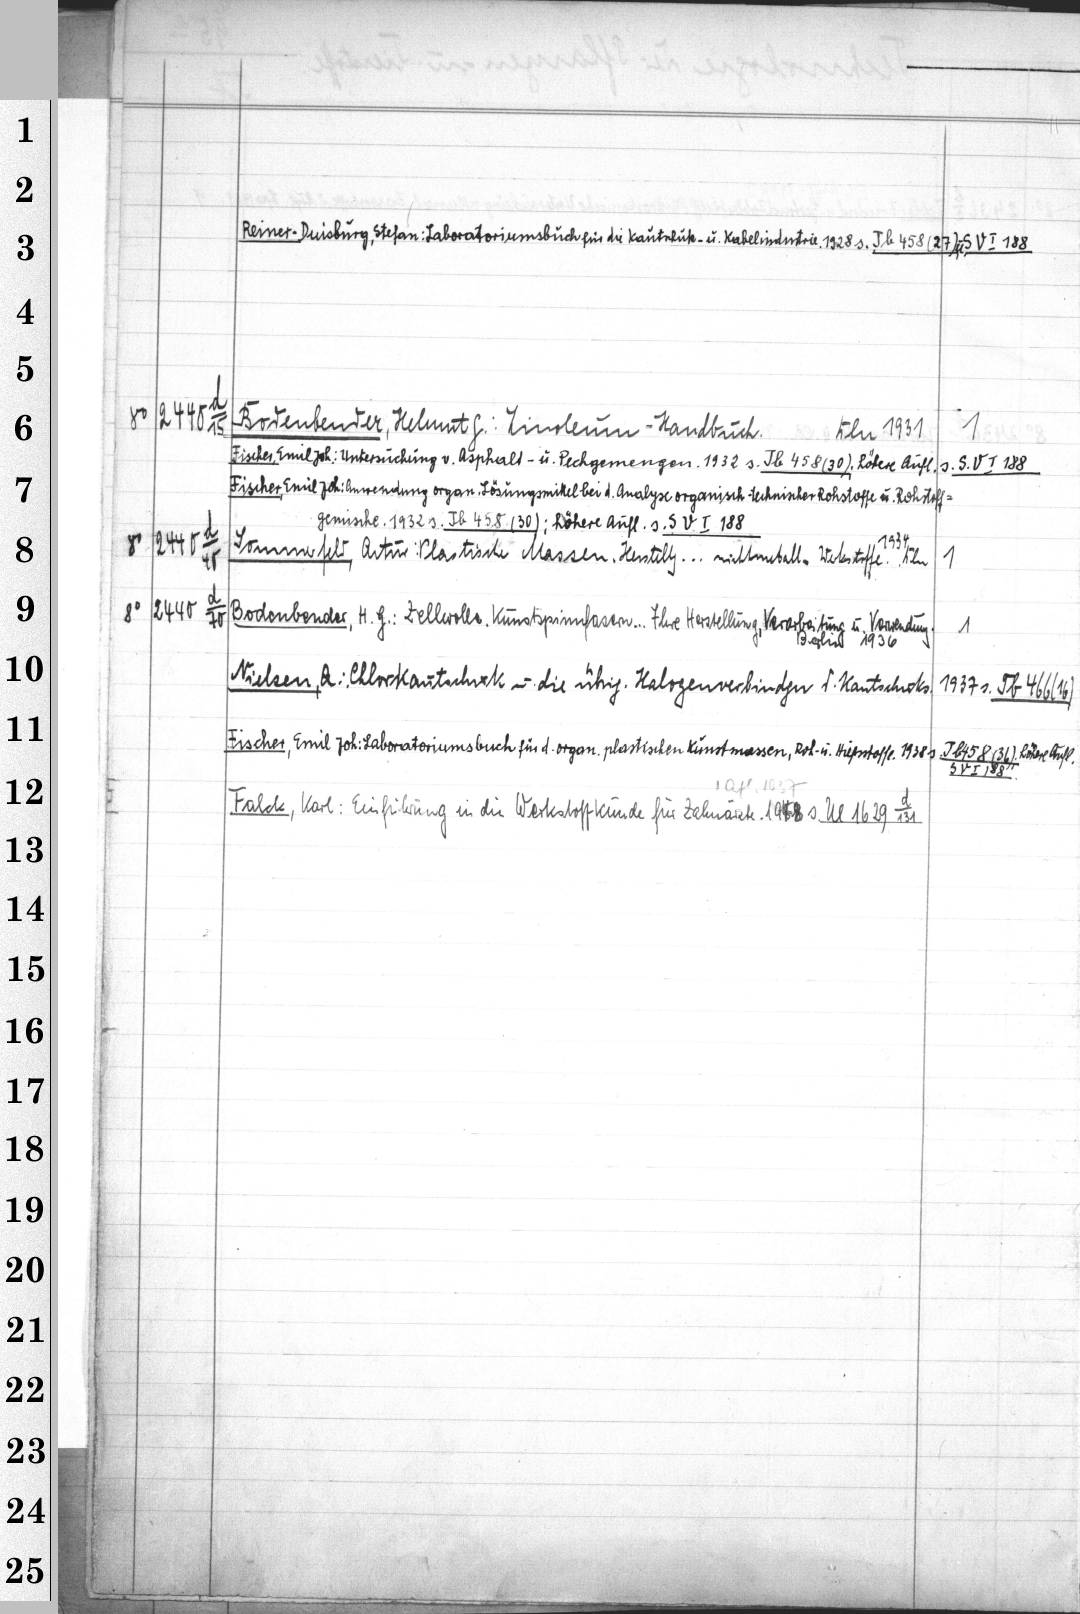 1
2
3
Reiner-Duisburg, Stefan: Laboratoriumsbuch für die Kautschuk- u. Kabelindustrie. 1928 s. Tb 458 (27) u. S V I 188
4
5
6
8° 2440 d/15 Bodenbender, Helmut G.: Linoleum-Handbuch. Bln 1931 1
Fischer, Emil Joh: Untersuchung v. Asphalt- u. Pechgemengen. 1932 s. Tb 458 (30). höhere Aufl. s. S. V I 188
7
Fischer, Emil Joh: Anwendung organ. Lösungsmittel bei d. Analyse organisch-technischer Rohstoffe u. Rohstoff=
gemische. 1932 s. Tb 458 (30); höhere Aufl. s. S V I 188
8
8° 2440 d/40 Sommerfeld, Artur: Plastische Massen. Herstellg... nichtmetall. Werkstoffe. 1934 Bln 1
9
8° 2440 d/70 Bodenbender, H. G.: Zellwolle. Kunstspinnfasern... Ihre Herstellung, Verarbeitung u. Verwendung. 1
Berlin 1936
10
Nielsen, A.: Chlorkautschuk u. die übrig. Halogenverbindgn d. Kautschuks. 1937 s. Tb 466 (16)
11
Fischer, Emil Joh: Laboratoriumsbuch für d. organ. plastischen Kunstmassen, Roh- u. Hilfsstoffe. 1938 s. Tb 458 (36). höhere Aufl.
S V I 188
12
1 Afl. 1937
Falck, Karl: Einführung in die Werkstoffkunde für Zahnärzte. s. Ul 1629 d/131
13
14
15
16
17
18
19
20
21
22
23
24
25